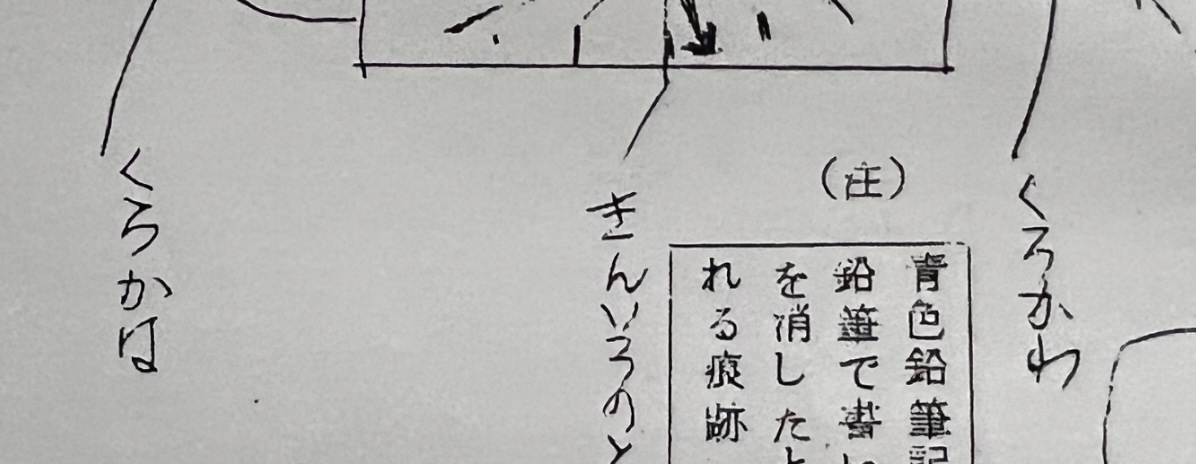 くろかわ
(注)
青色鉛筆記
鉛筆で書い
を消したと
れる痕跡
きんいろのと
くろかは